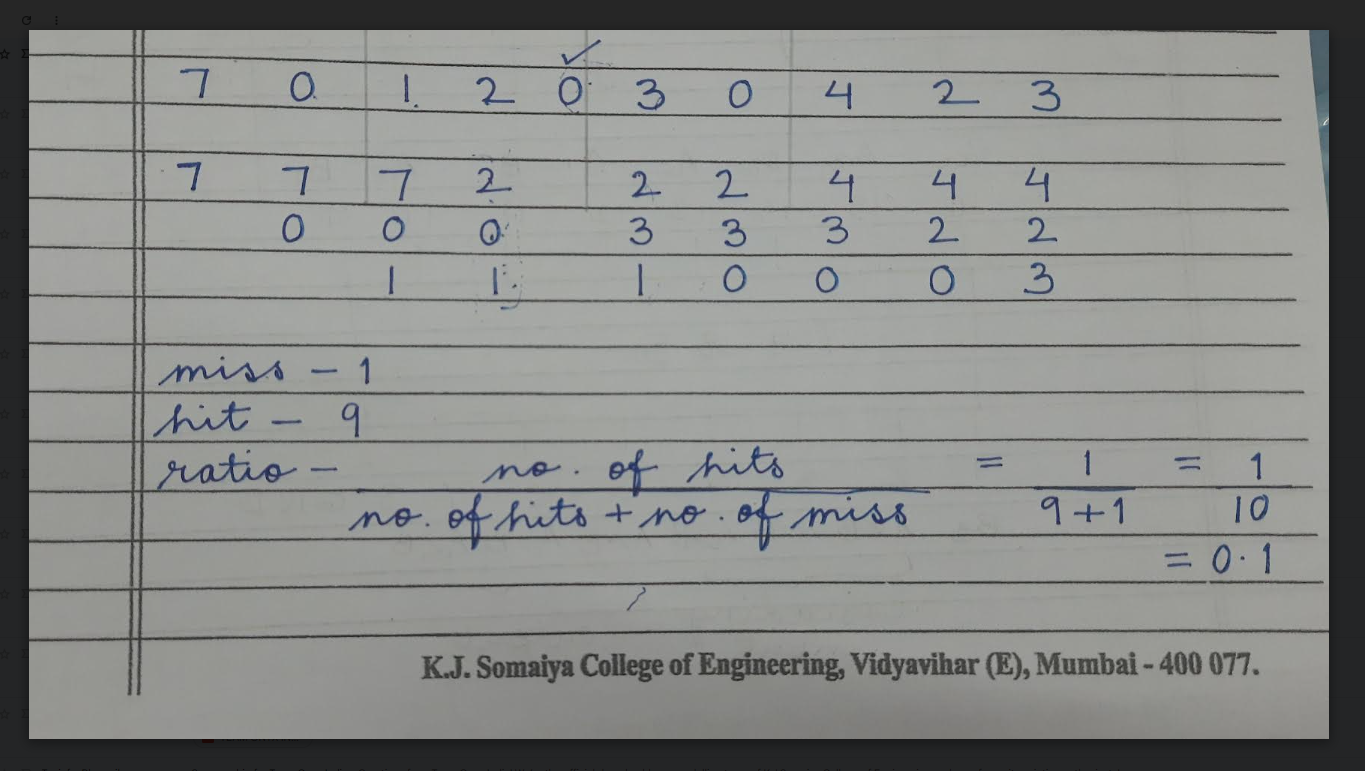 7 0 1 2 0 3 0 4 2 3
7 7 7 2 2 2 4 4 4
0 0 0 3 3 3 2 2
1 1 1 0 0 0 3
miss - 1
hit - 9
ratio - no. of hits = 1 = 1
no. of hits + no. of miss 9+1 10
= 0.1
K.J. Somaiya College of Engineering, Vidyavihar (E), Mumbai - 400 077.